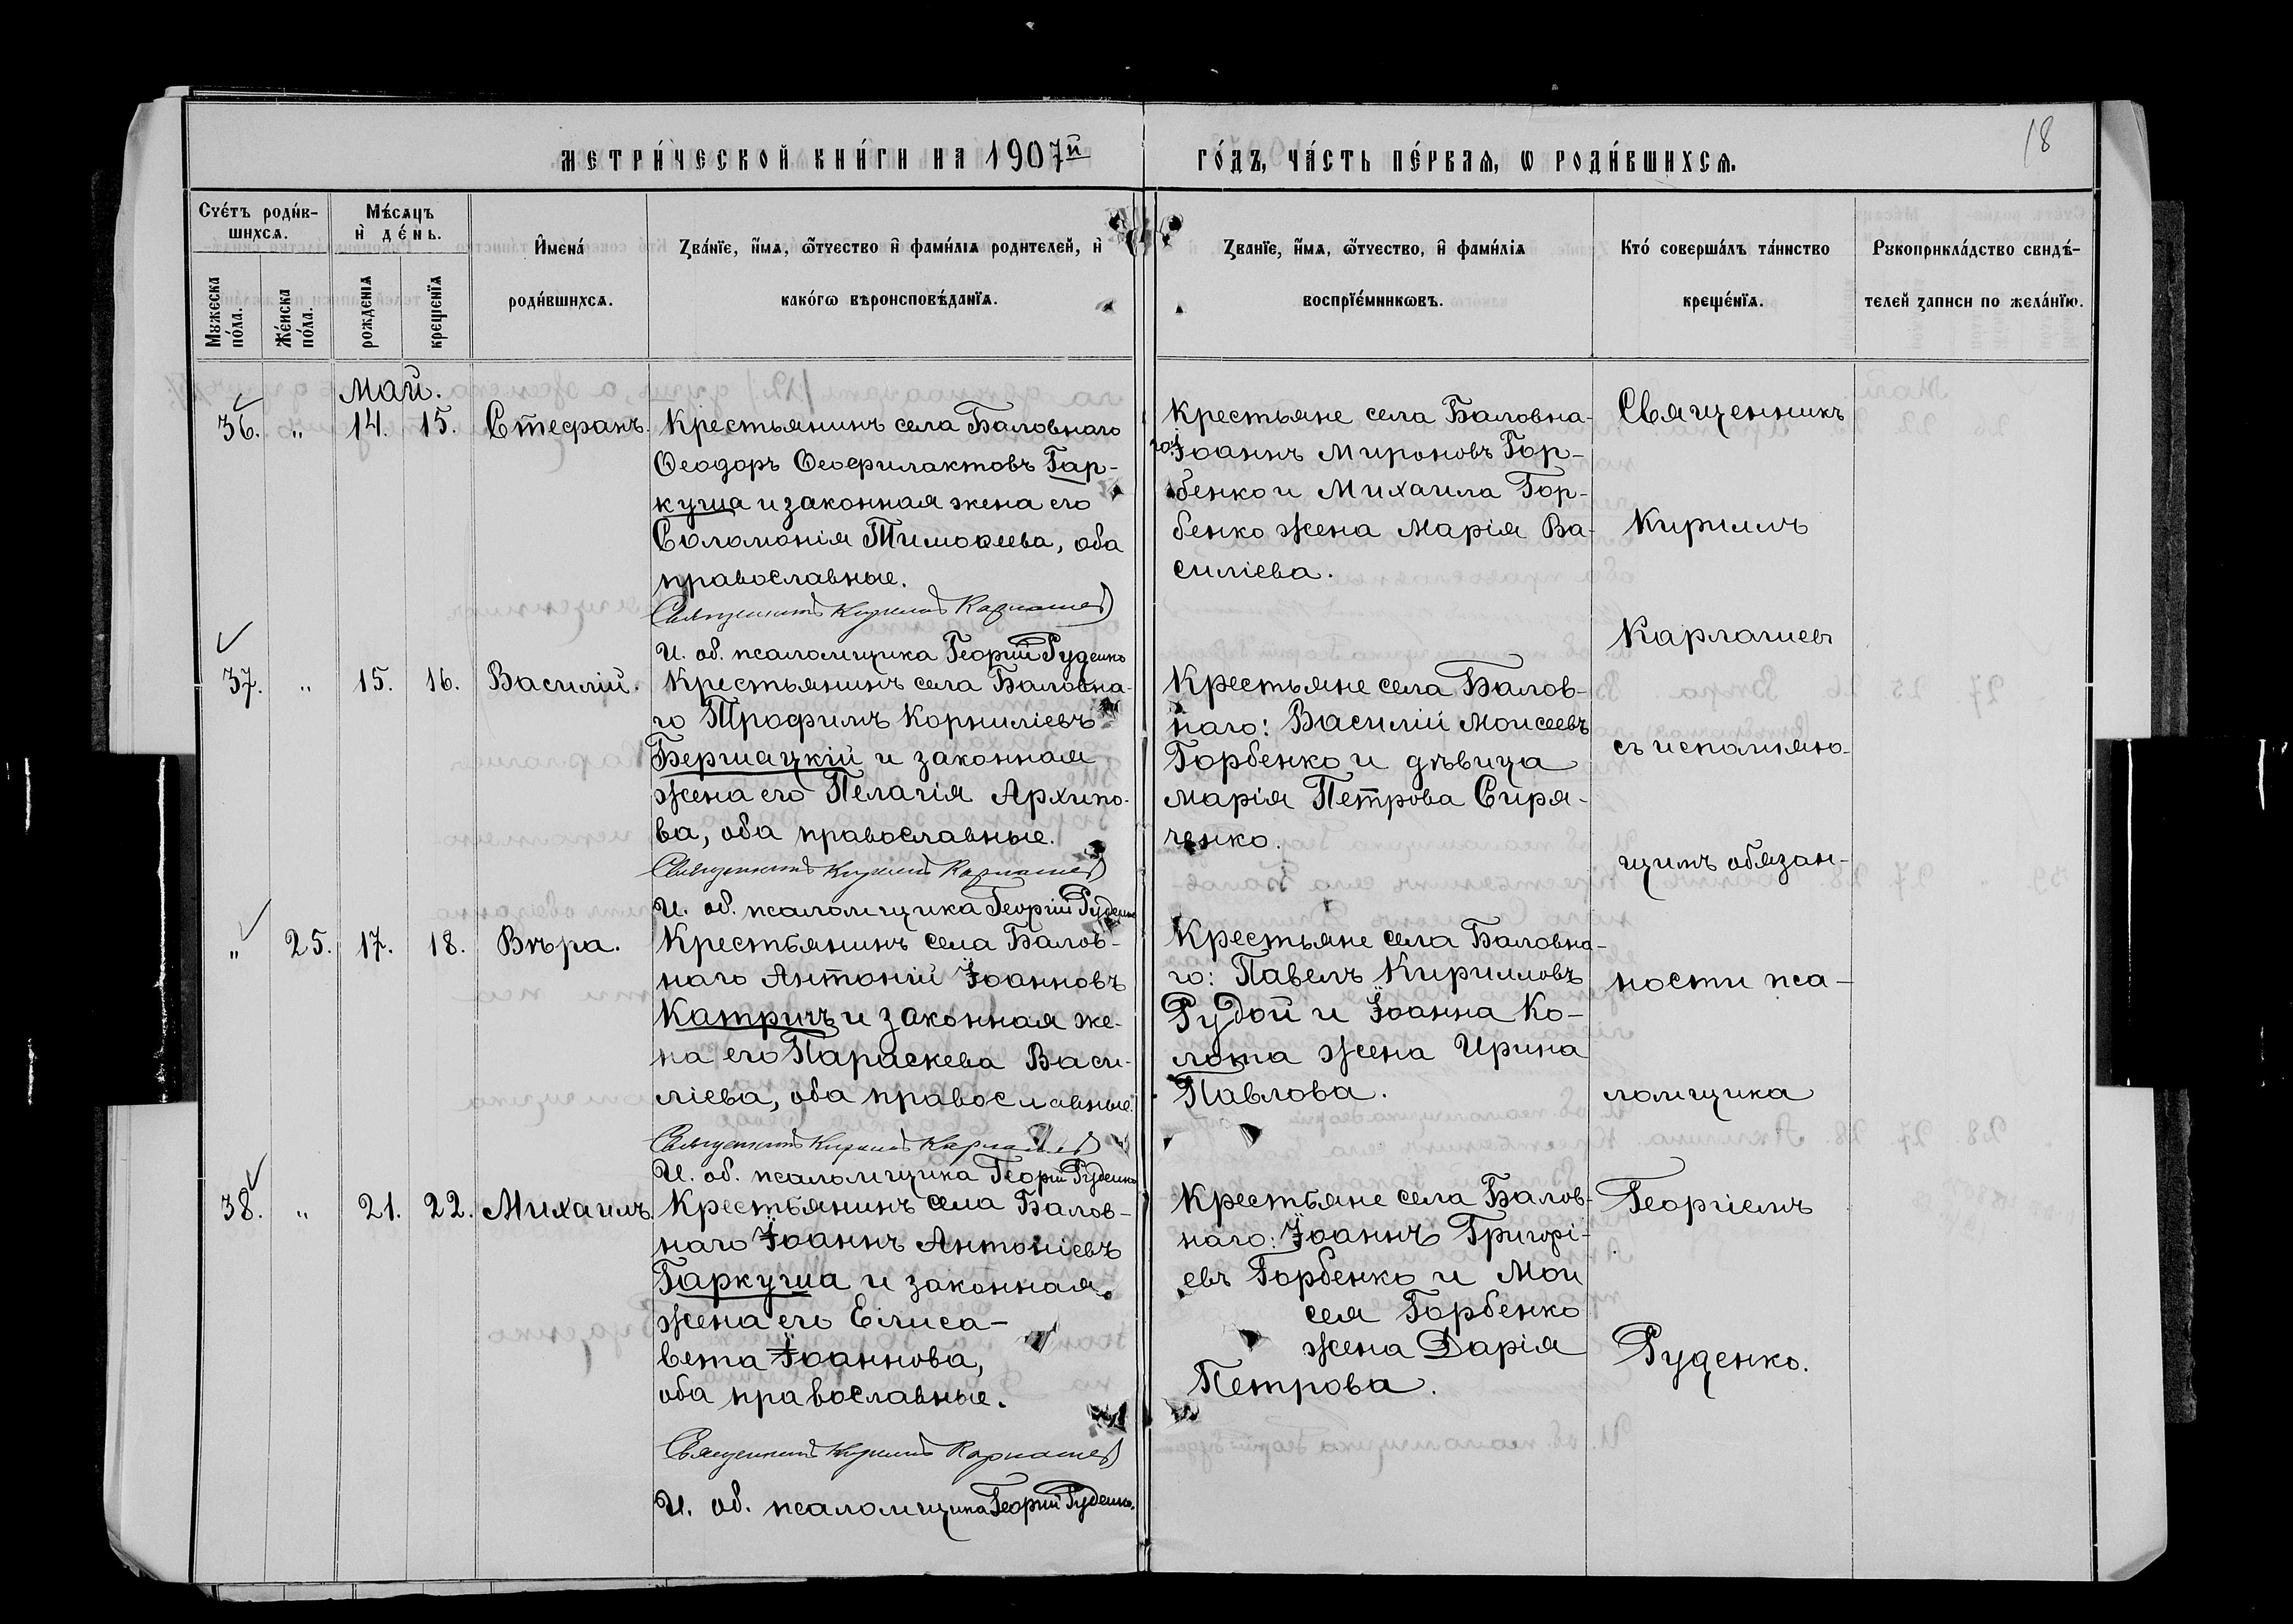 18
МЕТРИ́ЧЕСКОЙ КНИ́ГИ НА 1907й
ГО́ДЪ, ЧА́СТЬ ПЕ́РВАѦ, Ѡ РОДИ́ВШИХСѦ.
Сче́тъ роди́в-
шихсѧ.
Мꙋжеска по́ла.
Же́нска по́ла.
Мѣ́сѧцъ
и҆ де́нь.
рожденїѧ
крещенїѧ
И҆мена́
роди́вшихсѧ.
Зва́нїе, и҆́мѧ, ѻ҆́тчество и҆ фами́лїѧ родителей, и҆
како́гѡ вѣроисповѣ́данїѧ.
Зва́нїе, и҆́мѧ, ѻ҆́тчество, и҆ фами́лїѧ
воспрїе́мникѡвъ.
Кто́ соверша́лъ та́инство
креще́нїѧ.
Рꙋкоприкла́дство свидѣ́-
телей записи по жела́нїю.
Май.
36. " 14. 15. Стефанъ.
Крестьянинъ села Баловнаго
Ѳеодоръ Ѳеофилактовъ Гар-
куша и законная жена его
Соломонія Тимоѳеева, оба
православные.
Священникъ Кириллъ Карлашев
И. об. псаломщика Георгій Руденко
Крестьяне села Баловна-
го: Іоаннъ Мироновъ Гор-
бенко и Михаила Гор-
бенко жена Марія Ва-
силіева.
37. " 15. 16. Василій.
Крестьянинъ села Баловна-
го Трофимъ Корниліевъ
Бершацкій и законная
жена его Пелагія Архипо-
ва, оба православные.
Священникъ Кириллъ Карлашев
И. об. псаломщика Георгій Руденко
Крестьяне села Балов-
наго: Василій Моисеевъ
Горбенко и дѣвица
Марія Петрова Сиря-
ченко.
" 25. 17. 18. Вѣра.
Крестьянинъ села Балов-
наго Антоній Іоанновъ
Катричъ и законная же-
на его Параскева Васи-
ліева, оба православные.
Священникъ Кириллъ Карлашев
И. об. псаломщика Георгій Руденко
Крестьяне села Баловна-
го: Павелъ Кирилловъ
Рудой и Іоанна Ко-
лота жена Ирина
Павлова.
38. " 21. 22. Михаилъ.
Крестьянинъ села Балов-
наго Іоаннъ Антоніевъ
Гаркуша и законная
жена его Елиса-
вета Іоаннова,
оба православные.
Священникъ Кириллъ Карлашев
И. об. псаломщика Георгій Руденко.
Крестьяне села Балов-
наго: Іоаннъ Григорі-
евъ Горбенко и Мои
сея Горбенко
жена Дарія
Петрова.
Священникъ
Кириллъ
Карлашев
съ исполняю-
щимъ обязан-
ности пса-
ломщика
Георгіемъ
Руденко.